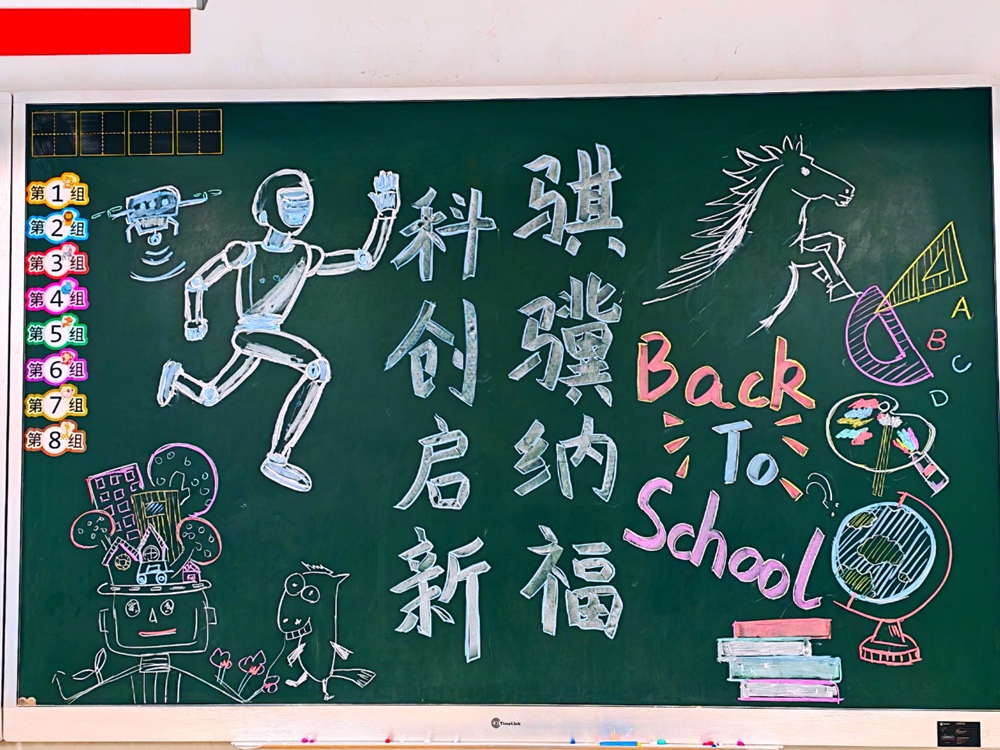 第1组
第2组
第3组
第4组
第5组
第6组
第7组
第8组
骐骥纳福
科创启新
Back
To
School
A
B
C
D
TimeLink